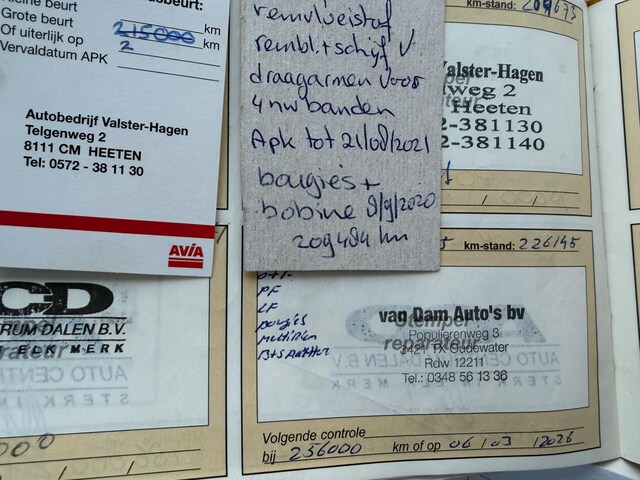 beurt:
Kleine beurt
Grote beurt km
Of uiterlijk op 215000 km
Vervaldatum APK 2
Autobedrijf Valster-Hagen
Telgenweg 2
8111 CM HEETEN
Tel: 0572 - 38 11 30
AVIA
remvloeistof
rembl.+schijf √
draagarmen voor
4 nw banden
Apk tot 21/08/2021
bougies +
bobine 9/9/2020
209484 km
km-stand: 209673
Valster-Hagen
weg 2
Heeten
2-381130
2-381140
km-stand: 226145
CD
TRUM DALEN B.V.
ELK MERK
PF
LF
bougies
van Dam Auto's bv
Stempel
Populierenweg 3
reparateur
3421 TX Oudewater
Rdw 12211
Tel.: 0348 56 13 36
Volgende controle
bij 256000 km of op 06 / 03 / 2026